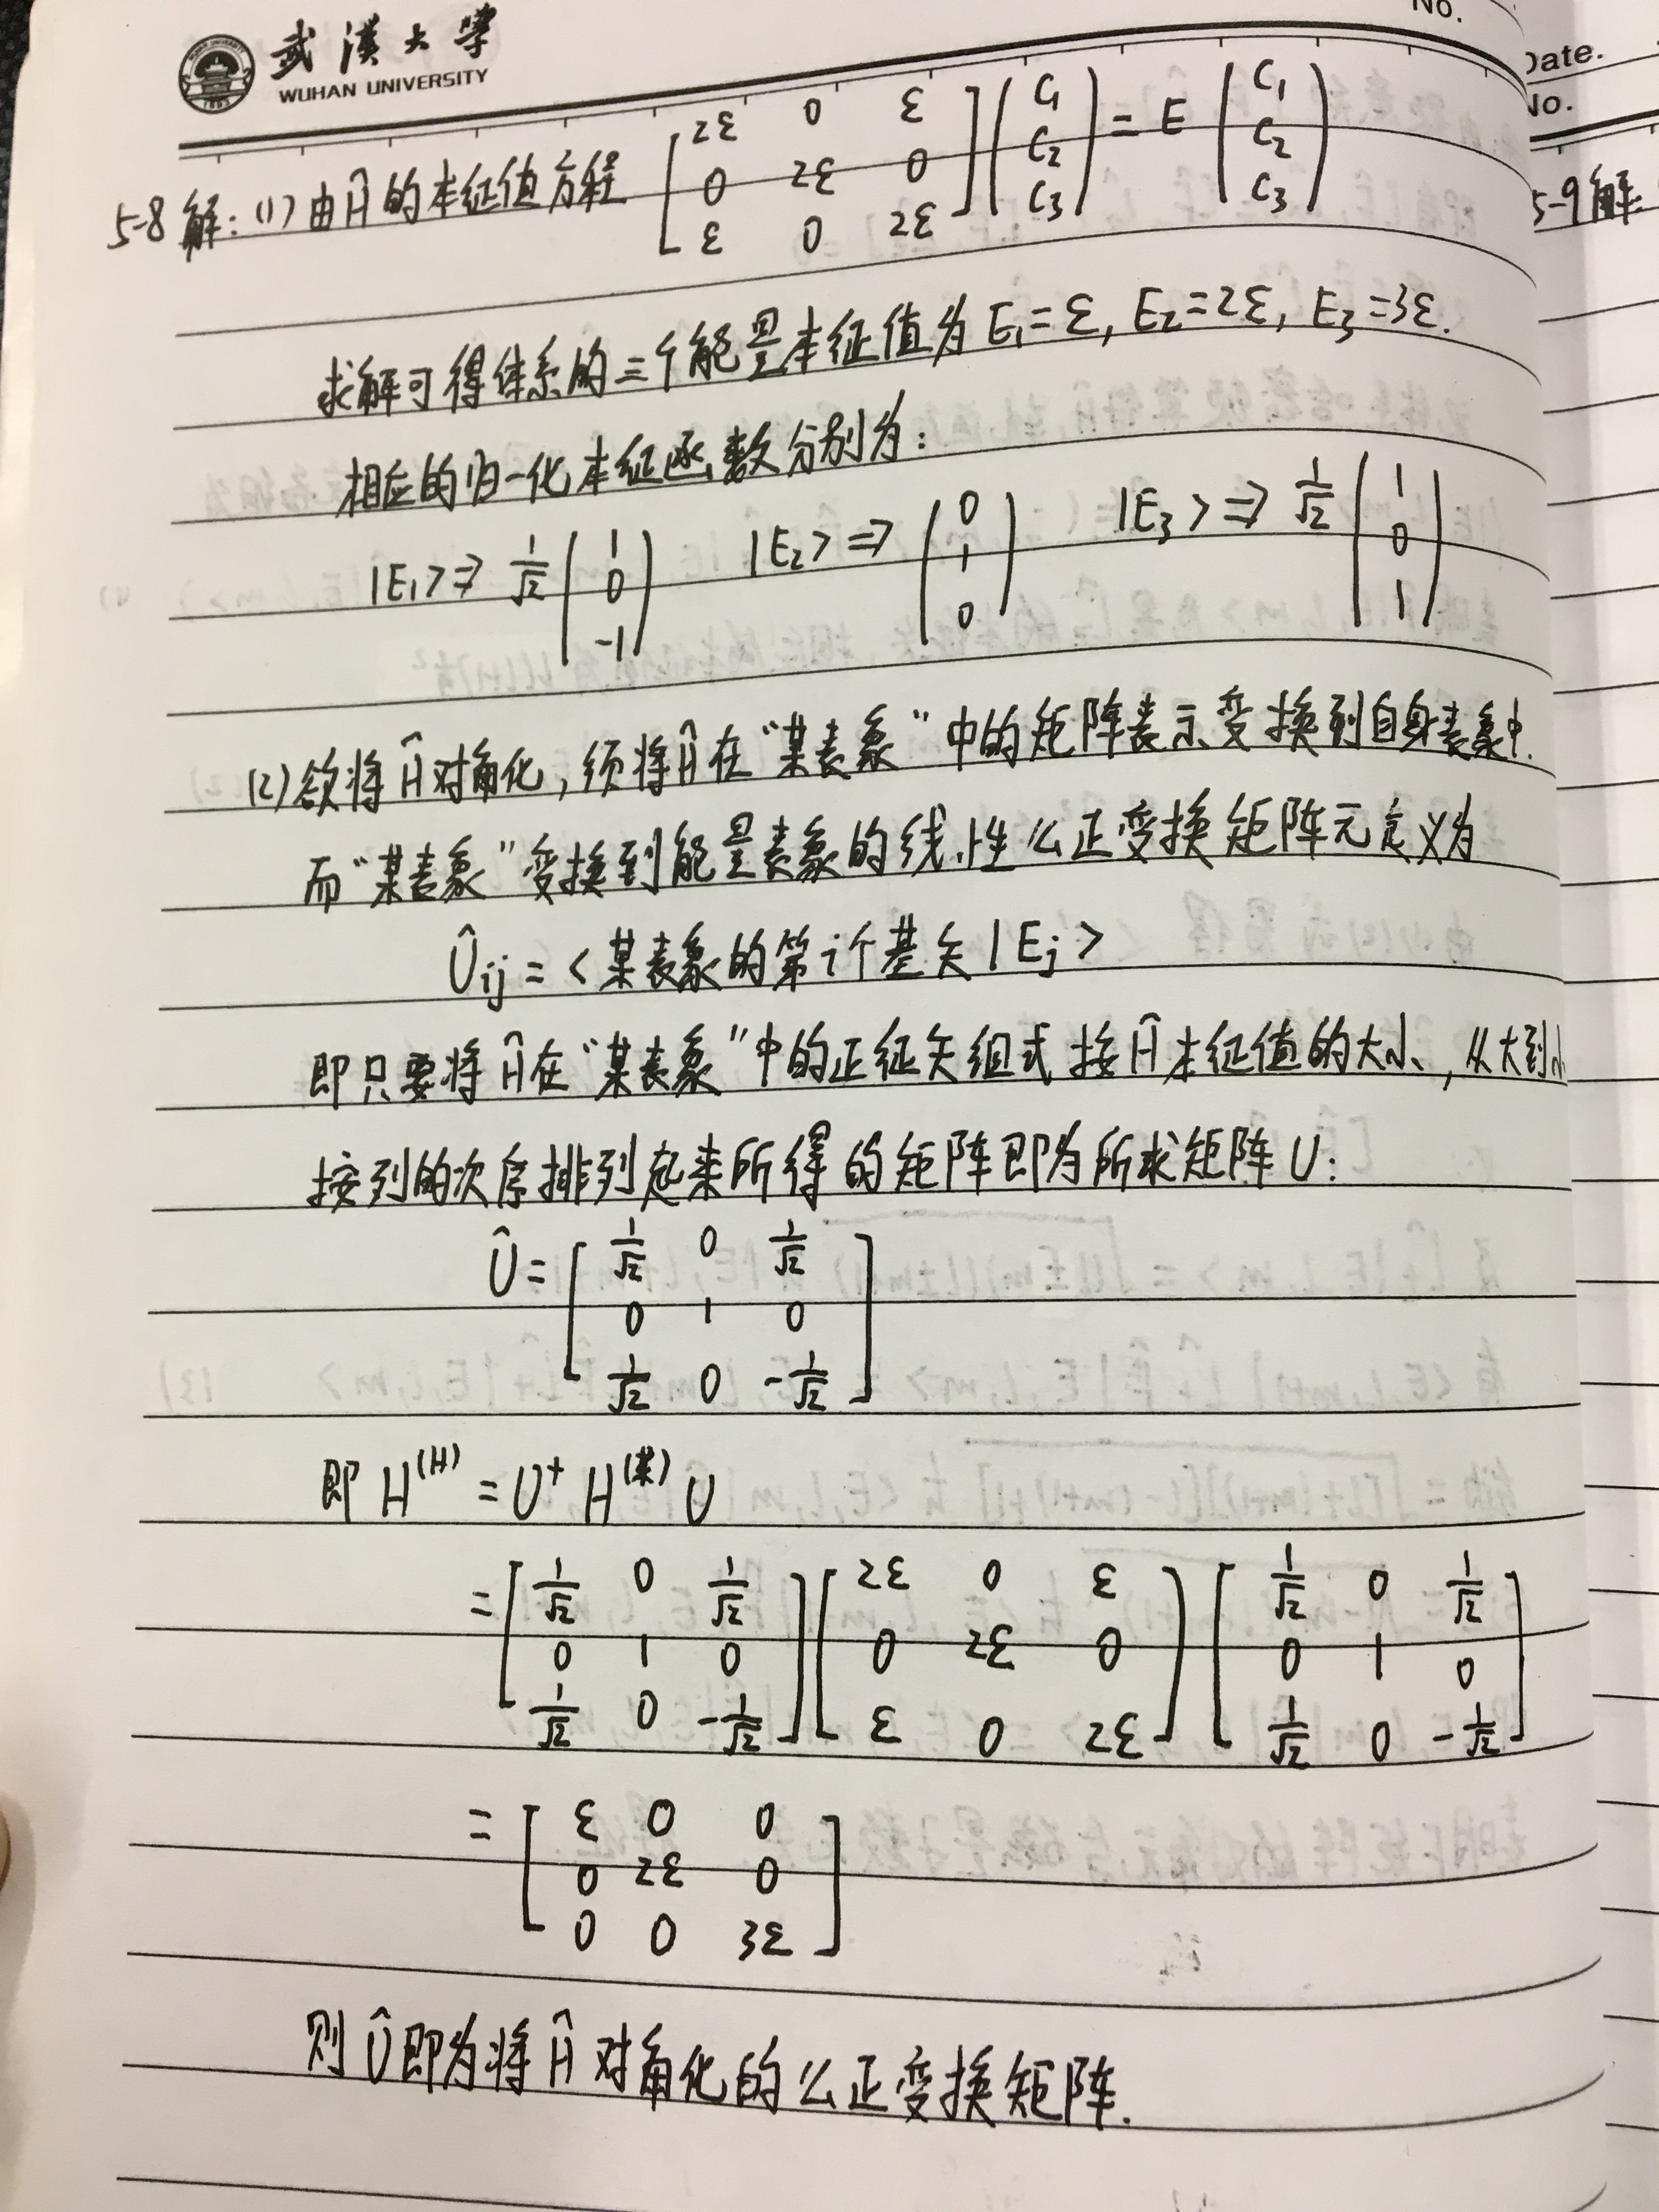 No.
武汉大学
WUHAN UNIVERSITY
Date.
No.
5-8 解: (1) 由Ĥ的本征值方程 [2ε 0 ε; 0 2ε 0; ε 0 2ε] (C1 C2 C3) = E (C1 C2 C3)
5-9 解:
求解可得体系的三个能量本征值为 E1=ε, E2=2ε, E3=3ε.
相应的归一化本征函数分别为:
|E1> ⇒ 1/√2 (1 0 -1) |E2> ⇒ (0 1 0) |E3> ⇒ 1/√2 (1 0 1)
(2) 欲将Ĥ对角化, 须将Ĥ在“某表象”中的矩阵表示变换到自身表象中.
而“某表象”变换到能量表象的线性么正变换矩阵元定义为
Ûij = <某表象的第i个基矢|Ej>
即只要将Ĥ在“某表象”中的正征矢组式按Ĥ本征值的大小, 从大到小
按列的次序排列起来所得的矩阵即为所求矩阵U:
Û = [1/√2 0 1/√2; 0 1 0; 1/√2 0 -1/√2]
即 H^(H) = U⁺ H^(某) U
= [1/√2 0 1/√2; 0 1 0; 1/√2 0 -1/√2] [2ε 0 ε; 0 2ε 0; ε 0 2ε] [1/√2 0 1/√2; 0 1 0; 1/√2 0 -1/√2]
= [ε 0 0; 0 2ε 0; 0 0 3ε]
则Û即为将Ĥ对角化的么正变换矩阵.